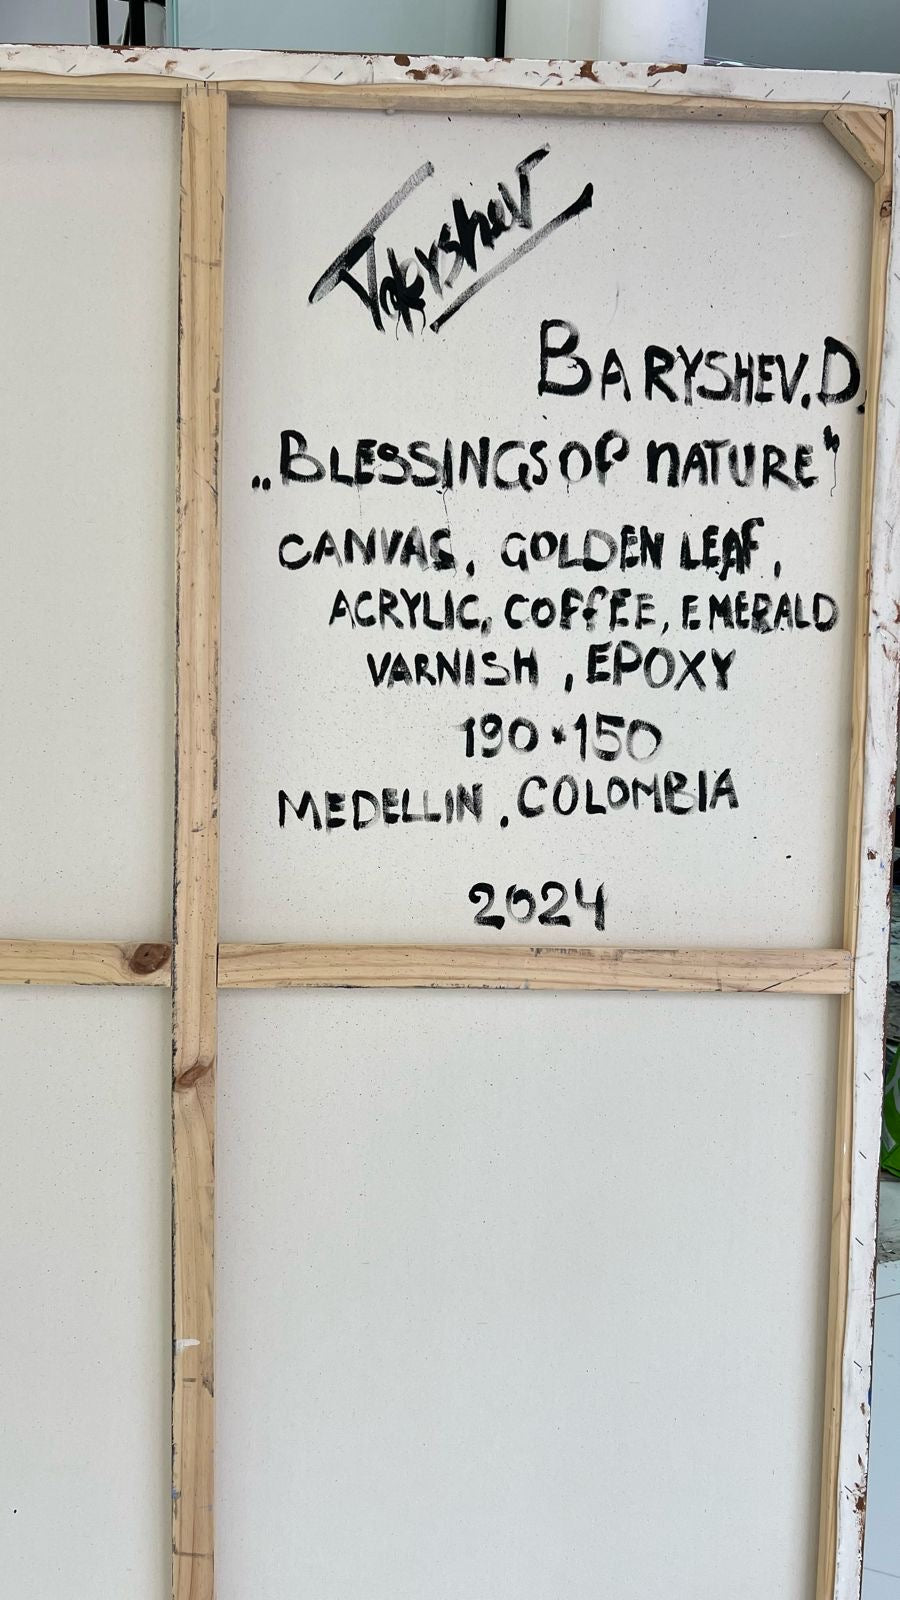 Baryshev
BARYSHEV.D.
„BLESSINGS OF NATURE"
CANVAS, GOLDEN LEAF,
ACRYLIC, COFFEE, EMERALD
VARNISH, EPOXY
190*150
MEDELLIN, COLOMBIA
2024